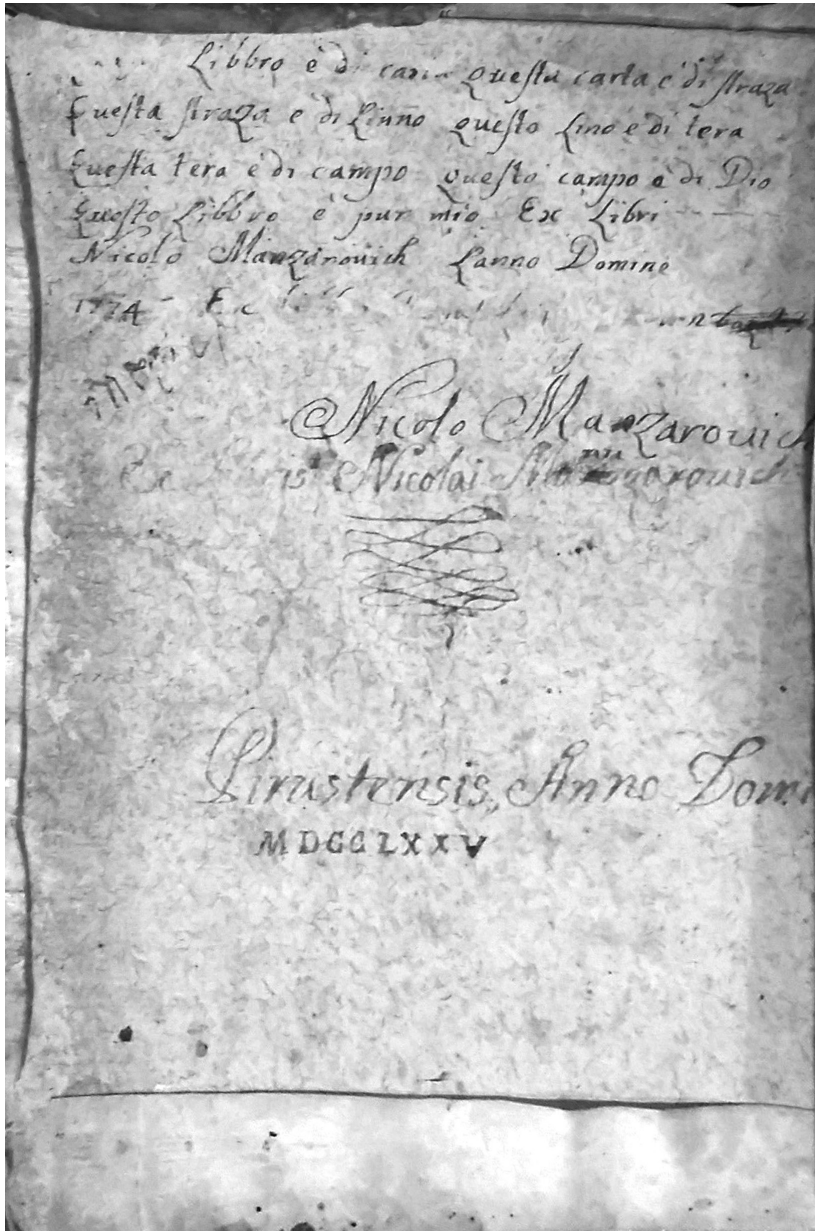 Libbro è di carta Questa carta è di straza
Questa straza è di Linno questo Lino è di tera
Questa tera è di campo questo campo è di Dio
Questo Libbro è pur mio Ex Libri
Nicolo Manzarovich Lanno Domine
1774 Ex
Nicolo Manzarovich
Ex Nicolai Manzarovich
Pirustensis, Anno Domi
MDCCLXXV